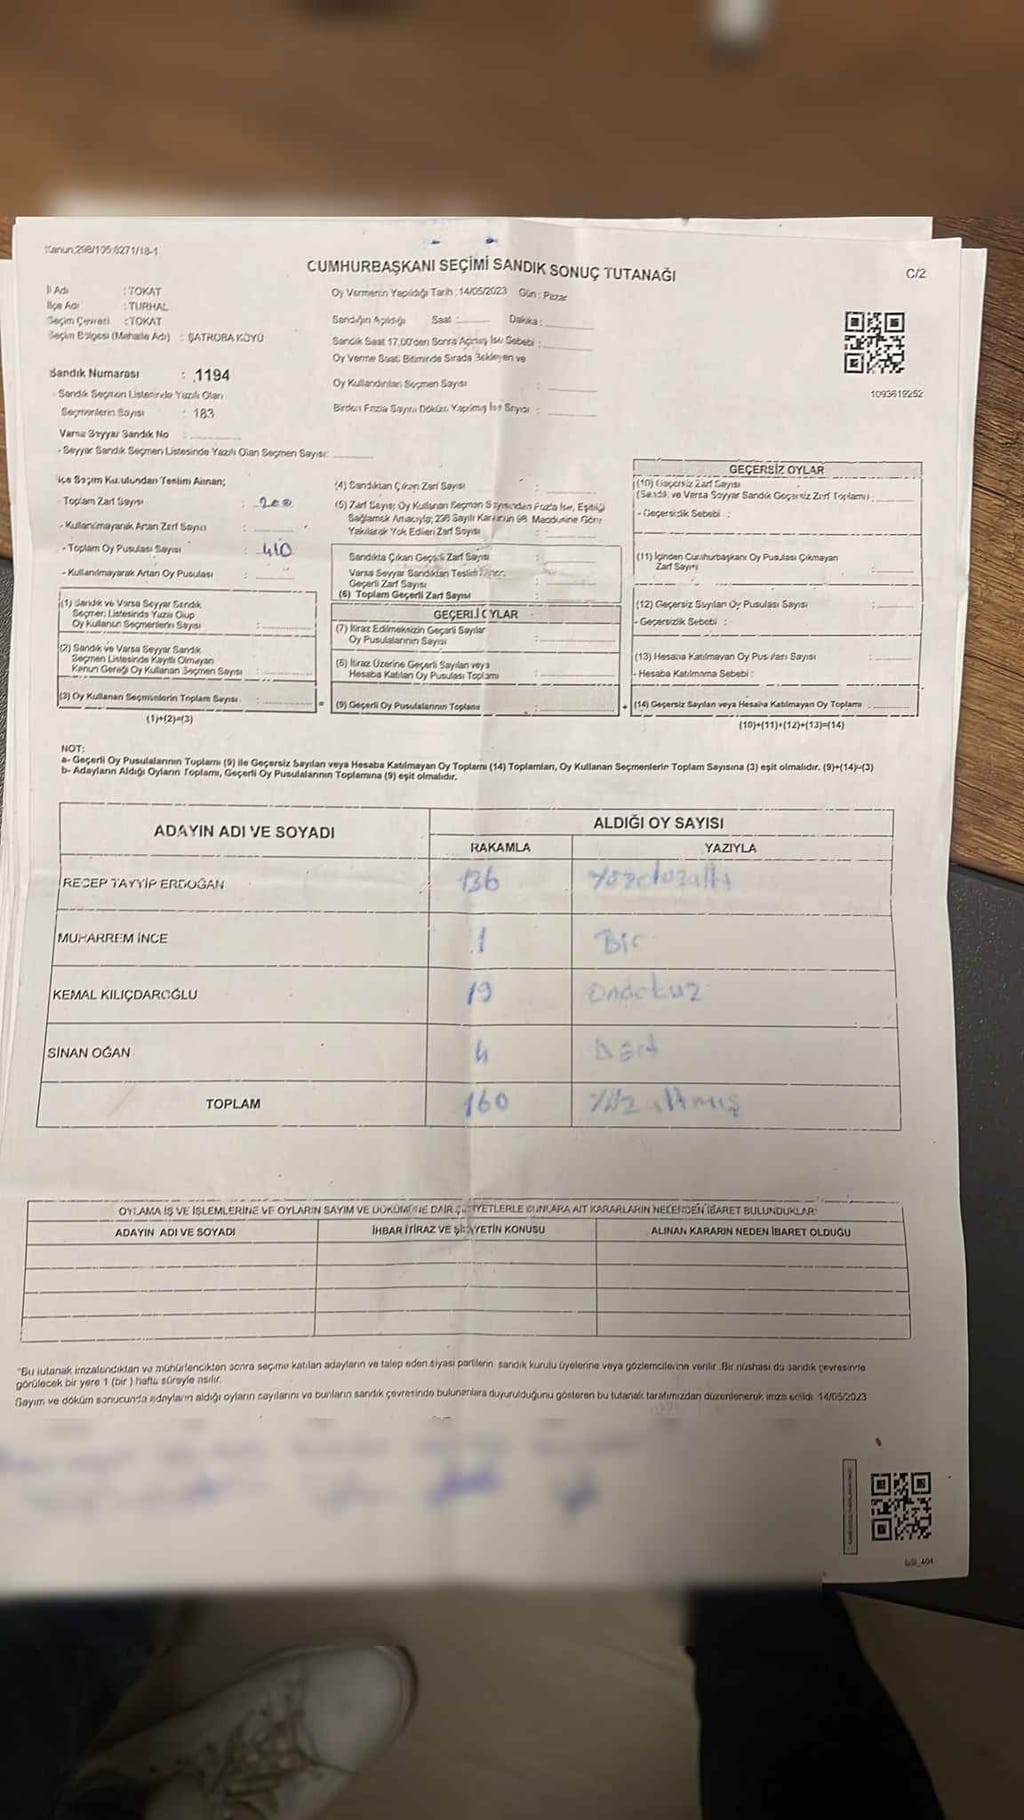 Kanun:298/105;6271/18-1
CUMHURBAŞKANI SEÇİMİ SANDIK SONUÇ TUTANAĞI
C/2
İl Adı : TOKAT
İlçe Adı : TURHAL
Seçim Çevresi : TOKAT
Seçim Bölgesi (Mahalle Adı) : ŞATROBA KÖYÜ
Sandık Numarası : 1194
- Sandık Seçmen Listesinde Yazılı Olan
Seçmenlerin Sayısı : 183
Varsa Seyyar Sandık No :
- Seyyar Sandık Seçmen Listesinde Yazılı Olan Seçmen Sayısı:
Oy Vermenin Yapıldığı Tarih :14/05/2023 Gün : Pazar
Sandığın Açıldığı Saat : Dakika :
Sandık Saat 17.00'den Sonra Açılmış İse Sebebi :
Oy Verme Saati Bitiminde Sırada Bekleyen ve
Oy Kullandırılan Seçmen Sayısı :
Birden Fazla Sayım Döküm Yapılmış İse Sayısı :
1093619252
İlçe Seçim Kurulundan Teslim Alınan;
- Toplam Zarf Sayısı : 200
- Kullanılmayarak Artan Zarf Sayısı :
- Toplam Oy Pusulası Sayısı : 410
- Kullanılmayarak Artan Oy Pusulası :
(1) Sandık ve Varsa Seyyar Sandık
Seçmen Listesinde Yazılı Olup
Oy Kullanan Seçmenlerin Sayısı :
(2) Sandık ve Varsa Seyyar Sandık
Seçmen Listesinde Kayıtlı Olmayan
Kanun Gereği Oy Kullanan Seçmen Sayısı :
(3) Oy Kullanan Seçmenlerin Toplam Sayısı :
(1)+(2)=(3)
(4) Sandıktan Çıkan Zarf Sayısı :
(5) Zarf Sayısı; Oy Kullanan Seçmen Sayısından Fazla İse, Eşitliği
Sağlamak Amacıyla; 298 Sayılı Kanunun 98. Maddesine Göre
Yakılarak Yok Edilen Zarf Sayısı :
Sandıkta Çıkan Geçerli Zarf Sayısı :
Varsa Seyyar Sandıktan Teslim Alınan
Geçerli Zarf Sayısı :
(6) Toplam Geçerli Zarf Sayısı :
GEÇERLİ OYLAR
(7) İtiraz Edilmeksizin Geçerli Sayılan
Oy Pusulalarının Sayısı :
(8) İtiraz Üzerine Geçerli Sayılan veya
Hesaba Katılan Oy Pusulası Toplamı :
(9) Geçerli Oy Pusulalarının Toplamı :
=
+
GEÇERSİZ OYLAR
(10) Geçersiz Zarf Sayısı
(Sandık ve Varsa Seyyar Sandık Geçersiz Zarf Toplamı) :
- Geçersizlik Sebebi :
(11) İçinden Cumhurbaşkanı Oy Pusulası Çıkmayan
Zarf Sayısı :
(12) Geçersiz Sayılan Oy Pusulası Sayısı :
- Geçersizlik Sebebi :
(13) Hesaba Katılmayan Oy Pusulası Sayısı :
- Hesaba Katılmama Sebebi :
(14) Geçersiz Sayılan veya Hesaba Katılmayan Oy Toplamı :
(10)+(11)+(12)+(13)=(14)
NOT:
a- Geçerli Oy Pusulalarının Toplamı (9) ile Geçersiz Sayılan veya Hesaba Katılmayan Oy Toplamı (14) Toplamları, Oy Kullanan Seçmenlerin Toplam Sayısına (3) eşit olmalıdır. (9)+(14)=(3)
b- Adayların Aldığı Oyların Toplamı, Geçerli Oy Pusulalarının Toplamına (9) eşit olmalıdır.
ADAYIN ADI VE SOYADI ALDIĞI OY SAYISI
RAKAMLA YAZIYLA
RECEP TAYYİP ERDOĞAN 136 Yüzotuzaltı
MUHARREM İNCE 1 Bir
KEMAL KILIÇDAROĞLU 19 Ondokuz
SİNAN OĞAN 4 Dört
TOPLAM 160 Yüz altmış
OYLAMA İŞ VE İŞLEMLERİNE VE OYLARIN SAYIM VE DÖKÜMÜNE DAİR ŞİKAYETLERLE BUNLARA AİT KARARLARIN NELERDEN İBARET BULUNDUKLARI
ADAYIN ADI VE SOYADI İHBAR İTİRAZ VE ŞİKAYETİN KONUSU ALINAN KARARIN NEDEN İBARET OLDUĞU
"Bu tutanak imzalandıktan ve mühürlendikten sonra seçime katılan adayların ve talep eden siyasi partilerin sandık kurulu üyelerine veya gözlemcilerine verilir. Bir nüshası da sandık çevresinde
görülecek bir yere 1 (bir) hafta süreyle asılır.
Sayım ve döküm sonucunda adayların aldığı oyların sayılarını ve bunların sandık çevresinde bulunanlara duyurulduğunu gösteren bu tutanak tarafımızdan düzenlenerek imza edildi. 14/05/2023